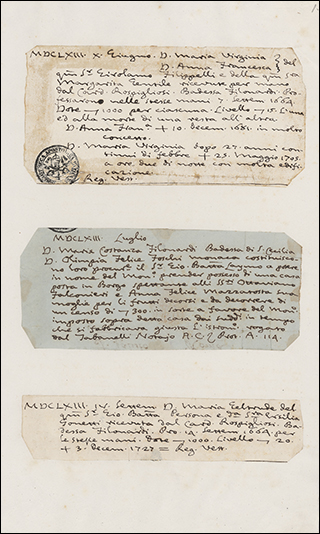 MDCLXIII. X. Giugno. D. Maria Virginia
D. Anna Francesca } del
qm̃ Sr Girolamo Filippelli e della qm̃ sra
Margarita Gentile ricevute per mano
dal Card. Rospigliosi. Badessa Filonardi. Pro-
fessarono nelle stesse mani 7 Settem 1664.
Dote 1000 per ciascuna. Livello 15. L'una
ed alla morte di una resta all'altra
D. Anna Franca + 10. decem. 1681. in molto
concetto.
D. Maria Virginia dopo 27. anni con
tinui di febbre + 25. Maggio 1705.
a ore due di notte con molta edifi
cazione.
Reg. Vest.
MDCLXIII Luglio
D. Maria Costanza Filonardi Badessa di S. Cecilia
D. Olimpia Felice monaca costituisco-
no loro procure il Sr Gio Batta a potere
in nome del Monro prendere possesso di una casa
posta in Borgo spettante alli SSri Ottaviano
Falconieri e Anna Felice Mazzarosa sua
moglie per li frutti decorsi e da decorrere di
un censo di 300. in sorte a favore del Monro
imposto sopra detta casa dai suddi in tempo
che si fabbricava giusta l'istromo rogato
dal Notajo A. C. Prot. A. 114.
MDCLXIII. IV. Settem D. Maria Geltrude del
qm̃ Sr Gio. Batta Persona e da Sra Ersilia
Gonetti ricevuta dal Card Rospigliosi. Ba-
dessa Filonardi. Pro. 14. Settem 1664. per
le stesse mani. dote 1000. Livello 20.
+ 3. decem. 1727 = Reg. Vest.